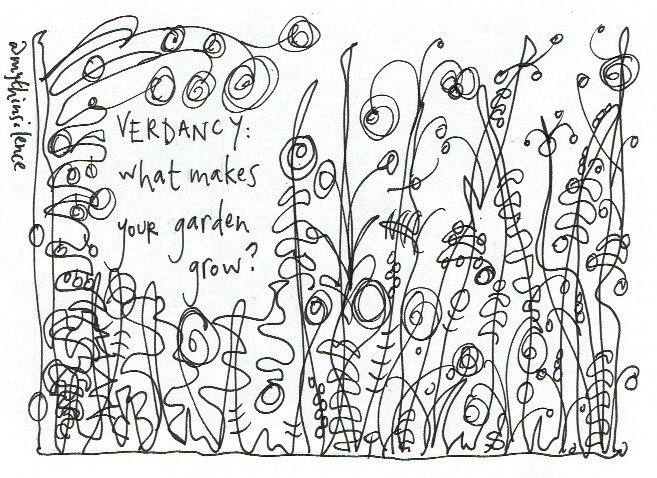 @mythinsilence
VERDANCY:
what makes
your garden
grow?